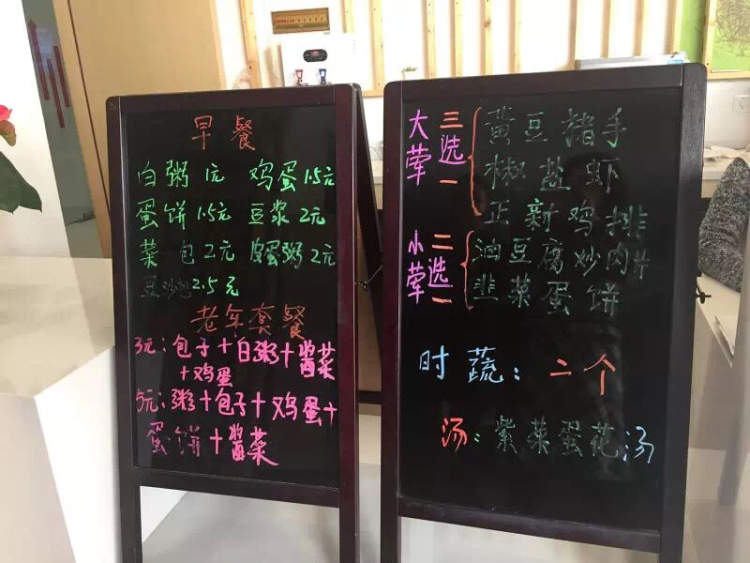 早餐
白粥 1元 鸡蛋1.5元
蛋饼1.5元 豆浆2元
菜包2元 皮蛋粥2元
豆沙包2.5元
老年套餐
3元：包子+白粥+酱菜
+鸡蛋
5元：粥+包子+鸡蛋+
蛋饼+酱菜
大荤 三选一
黄豆猪手
椒盐虾
正新鸡排
小荤 二选一
油豆腐炒肉片
韭菜蛋饼
时蔬：二个
汤：紫菜蛋花汤